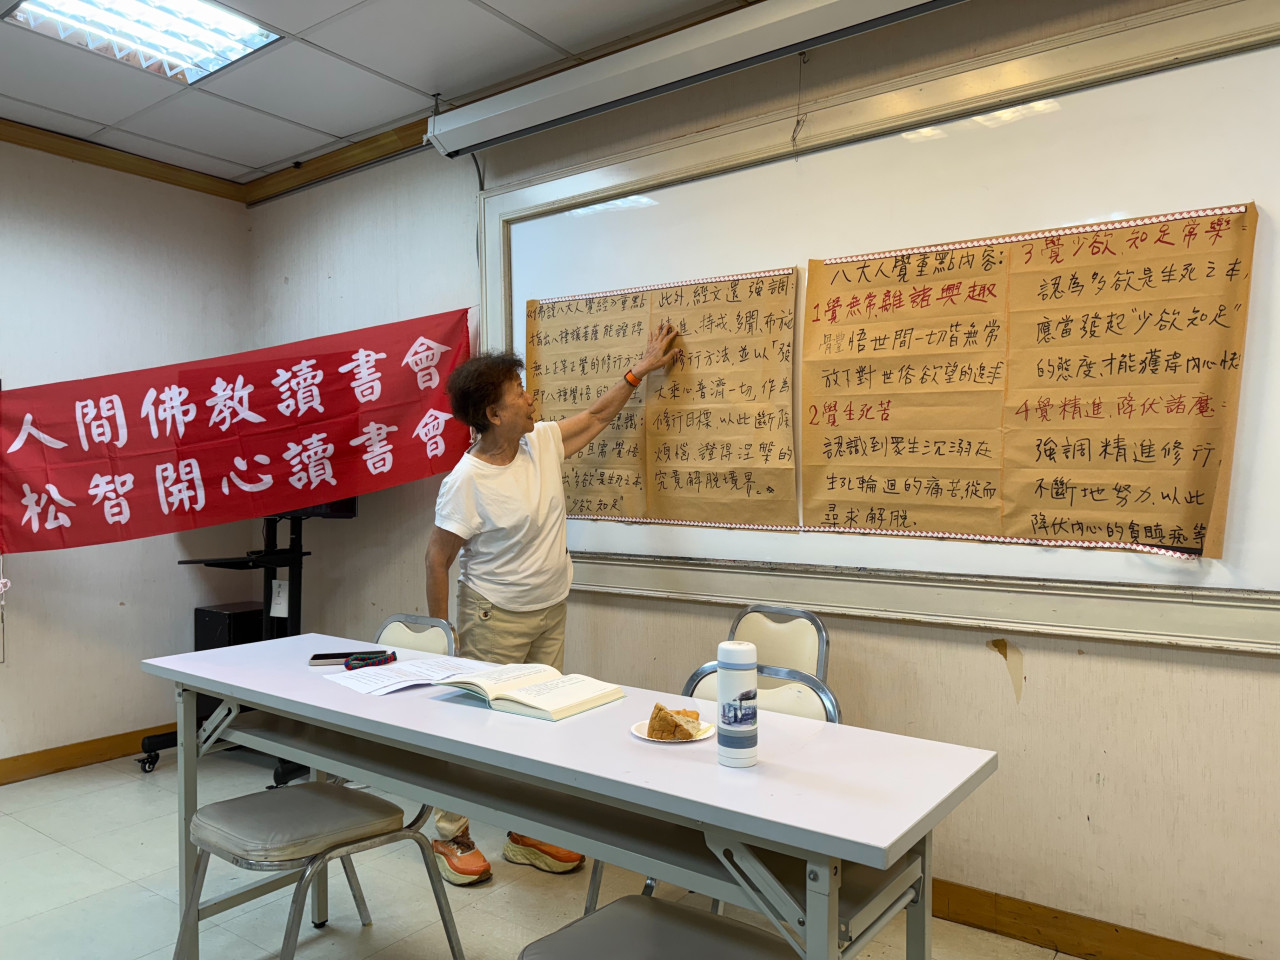 人間佛教讀書會
松智開心讀書會
佛說八大人覺經》重點
指出八種讓菩薩能證得
無上正等正覺的修行方法
即八種覺悟的
"少欲知足"
此外，經文還強調：
精進、持戒、多聞、布施
修行方法，並以「發
大乘心，普濟一切，作為
修行目標，以此斷除
煩惱，證得涅槃的
究竟解脫境界。
八大人覺重點內容：
1覺無常，離諸興趣
悟世間一切皆無常
放下對世俗欲望的追求
2覺生死苦
認識到眾生沉溺在
生死輪迴的痛苦，從而
尋求解脫.
3覺少欲，知足常樂：
認為多欲是生死之本，
應當發起"少欲知足"
的態度，才能獲得內心快
4覺精進，降伏諸魔：
強調精進修行，
不斷地努力，以此
降伏內心的貪瞋痴等